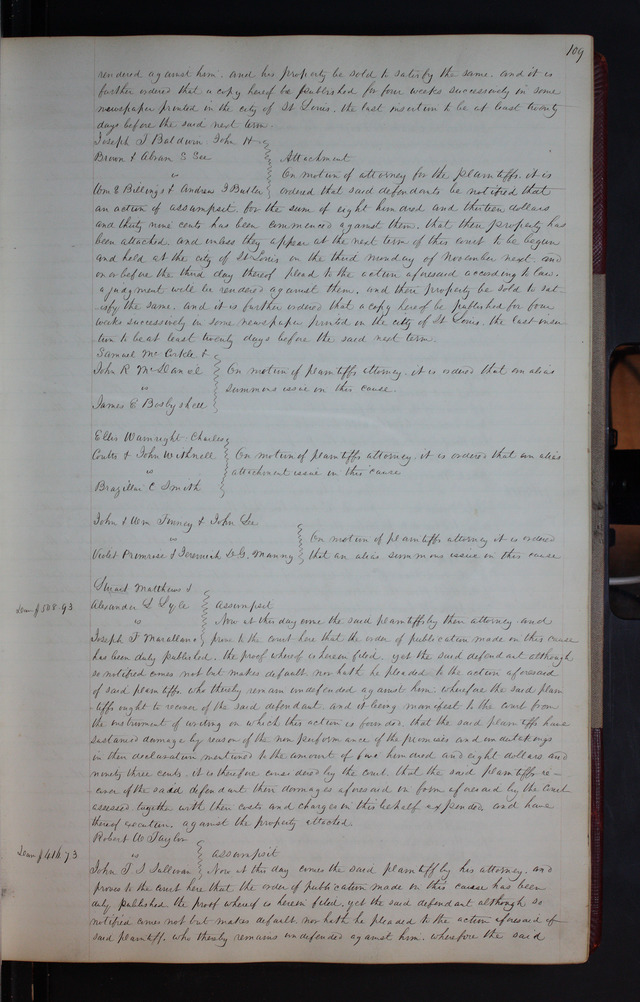 109
rendered against him. and his property be sold to satisfy the same. and it is
further ordered that a copy hereof be published for four weeks successively in some
newspaper printed in the city of St Louis. the last insertion to be at least twenty
days before the said next term.
Joseph T Baldwin John H
Brown & Abram S See
Attachment
vs
On motion of attorney for the plaintiffs. it is
Wm E Billings & Andrew J Butler
ordered that said defendants be notified that
an action of assumpsit for the sum of eight hundred and thirteen dollars
and thirty nine cents has been commenced against them. that their property has
been attached. and unless they appear at the next term of this court to be begun
and held at the city of St Louis on the third monday of November next. and
on or before the third day thereof plead to the action aforesaid according to law.
a judgment will be rendered against them. and their property be sold to sat-
isfy the same. and it is further ordered that a copy hereof be published for four
weeks successively in some newspaper printed in the city of St Louis. the last inser
tion to be at least twenty days before the said next term.
Samuel McCorkle &
John R McDaniel
On motion of plaintiffs attorney. it is ordered that an alias
vs
summons issue in this cause.
James C Bosbyshell
Eller Wainright Charles
Coutts & John Withnell
On motion of plaintiffs attorney. it is ordered that an alias
vs
attachment issue in this cause
Brazillai C Smith
John & Wm Finney & John Lee
vs
On motion of plaintiffs attorney it is ordered
Violet Primrose & Jeremiah D. G. Manny
that an alias summons issue in this cause
Stuart Matthews &
Dem $508.93
Alexander L Lyle
assumpsit
vs
Now at this day come the said plaintiffs by their attorney. and
Joseph F Marallano
prove to the court here that the order of publication made in this cause
has been duly published. the proof whereof is herein filed. yet the said defendant although
so notified comes not but makes default. nor hath he pleaded to the action aforesaid
of said plaintiffs. who thereby remain undefended against him. wherefore the said plain
tiffs ought to recover of the said defendant. and it being manifest to the court from
the instrument of writing on which this action is founded. that the said plaintiffs have
sustained damage by reason of the non performance of the promises and undertakings
in their declaration mentioned to the amount of five hundred and eight dollars and
ninety three cents. it is therefore considered by the court. that the said plaintiffs re-
cover of the said defendant their damages aforesaid in form aforesaid by the court
assessed. together with their costs and charges in this behalf expended. and have
thereof execution against the property attached.
Robert W Taylor
Dem $416.73
vs
assumpsit
John T. J Sullivan
Now at this day comes the said plaintiff by his attorney. and
proves to the court here that the order of publication made in this cause has been
duly published the proof whereof is herein filed. yet the said defendant although so
notified comes not but makes default nor hath he pleaded to the action aforesaid of
said plaintiff. who thereby remains undefended against him. wherefore the said